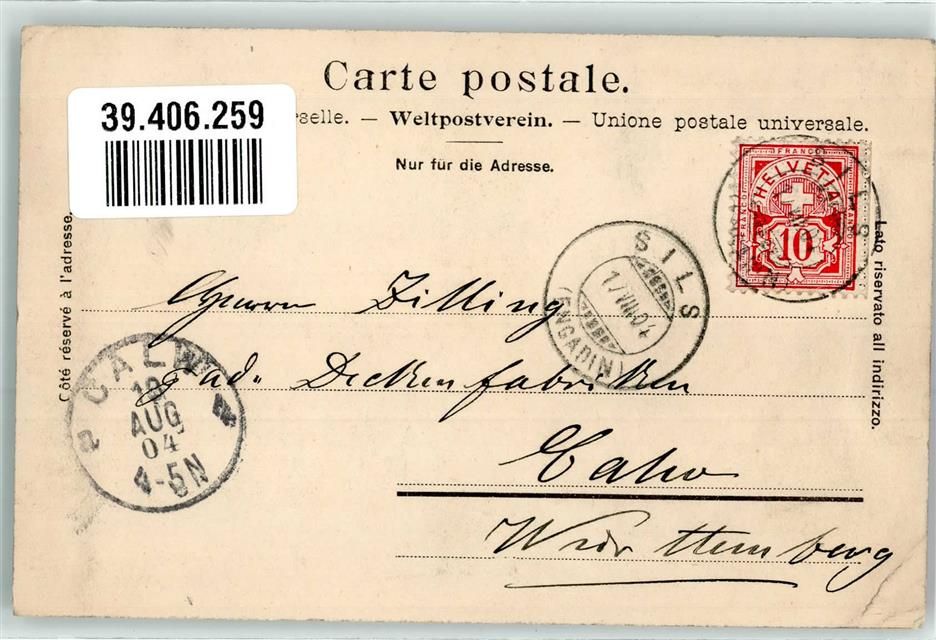 Carte postale.
39.406.259
rselle. — Weltpostverein. — Unione postale universale.
Nur für die Adresse.
Côté réservé à l'adresse.
Lato riservato all indirizzo.
FRANCO
HELVETIA
10
FRANCO
FRANCO
SILS
SILS
17 VIII 04
(ENGADIN)
Herrn Zilling
Deckenfabriken
Calw
Württemberg
CALW
18
AUG
04
4-5N